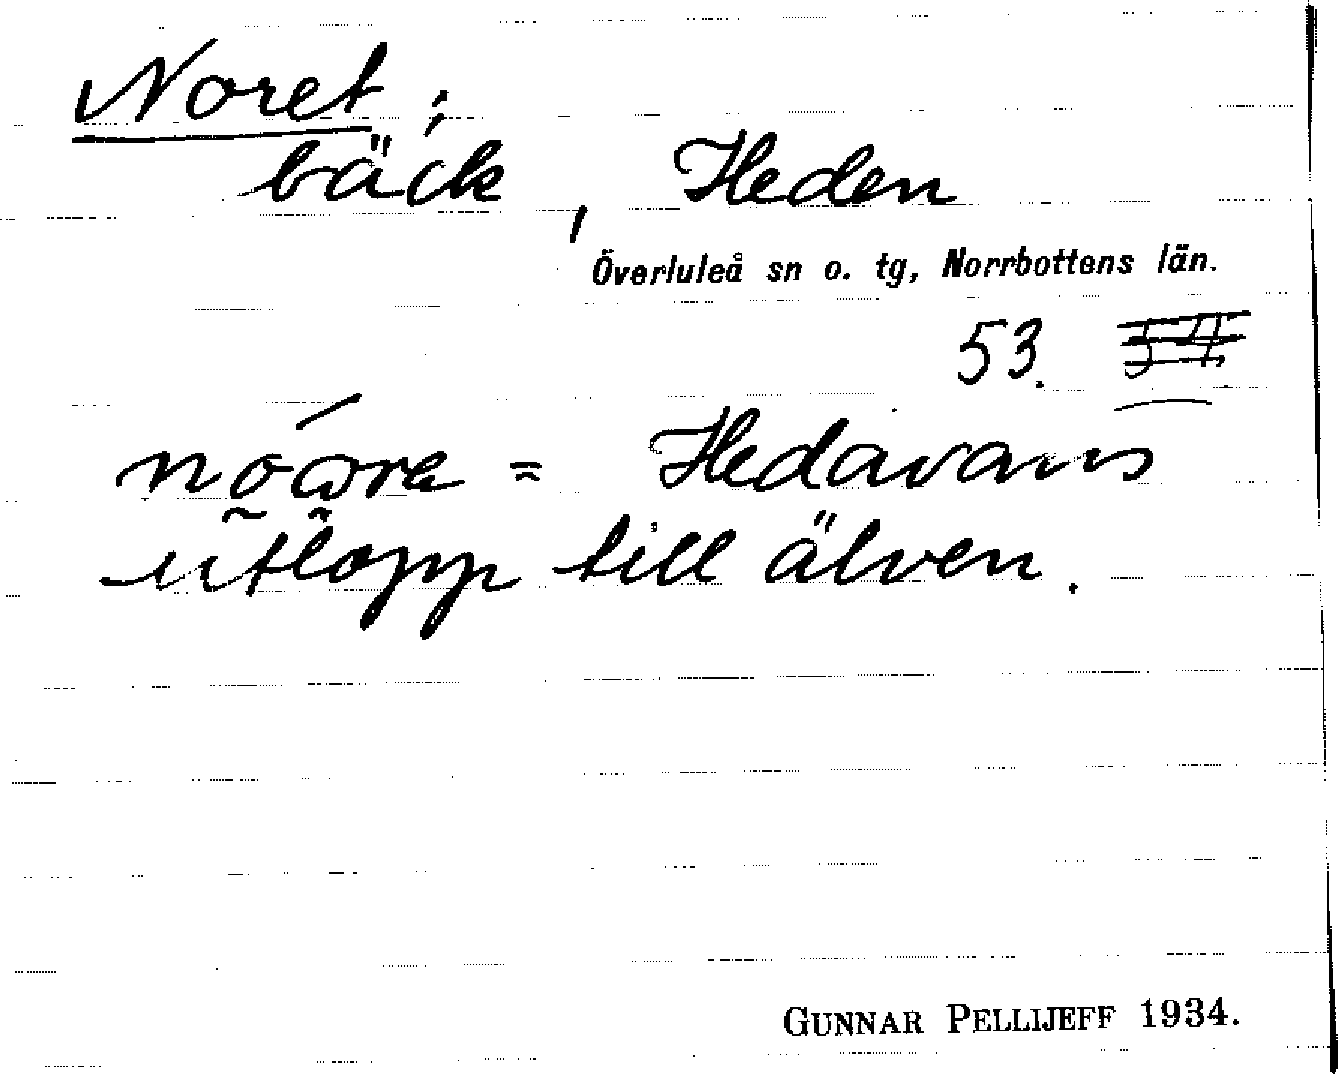 Noret;
bäck, Heden
Överluleå sn o. tg, Norrbottens län.
53.
= Hedavans
utlopp till älven.
GUNNAR PELLIJEFF 1934.